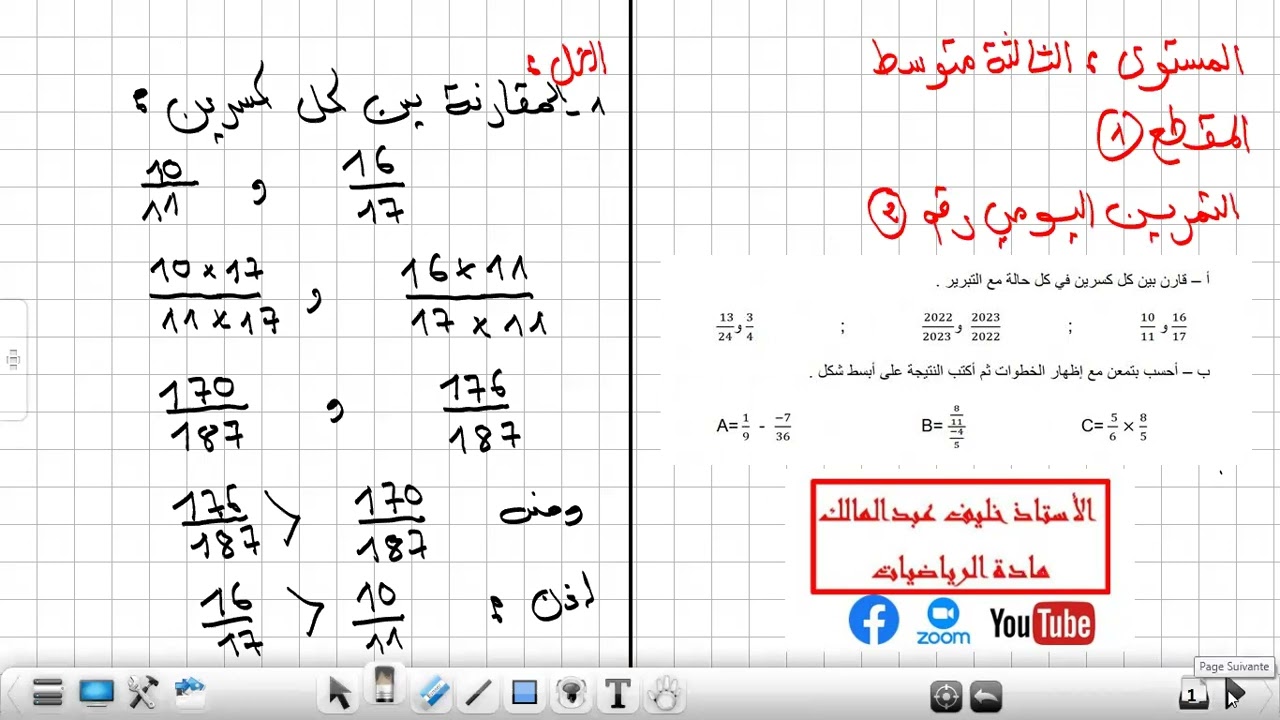 المستوى : الثالثة متوسط
المقطع ①
التمرين اليومي رقم ②
أ – قارن بين كل كسرين في كل حالة مع التبرير .
16/17 و 10/11 ; 2023/2022 و 2022/2023 ; 3/4 و 13/24
ب – أحسب بتمعن مع إظهار الخطوات ثم أكتب النتيجة على أبسط شكل .
A= 1/9 - -7/36 B= (8/11)/(-4/5) C= 5/6 × 8/5
الأستاذ خليف عبد المالك
مادة الرياضيات
zoom YouTube
الحل :
1 - المقارنة بين كل كسرين :
10/11 , 16/17
10×17/11×17 , 16×11/17×11
170/187 , 176/187
ومنه 176/187 > 170/187
اذن : 16/17 > 10/11
Page Suivante
T 1